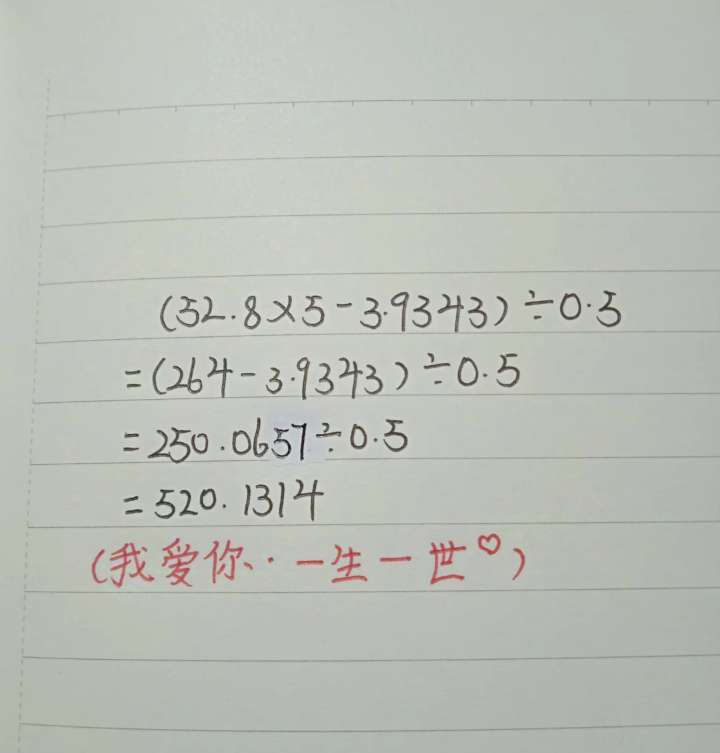 (52.8×5-3.9343)÷0.5
=(264-3.9343)÷0.5
=250.0657÷0.5
=520.1314
(我爱你··一生一世♡)